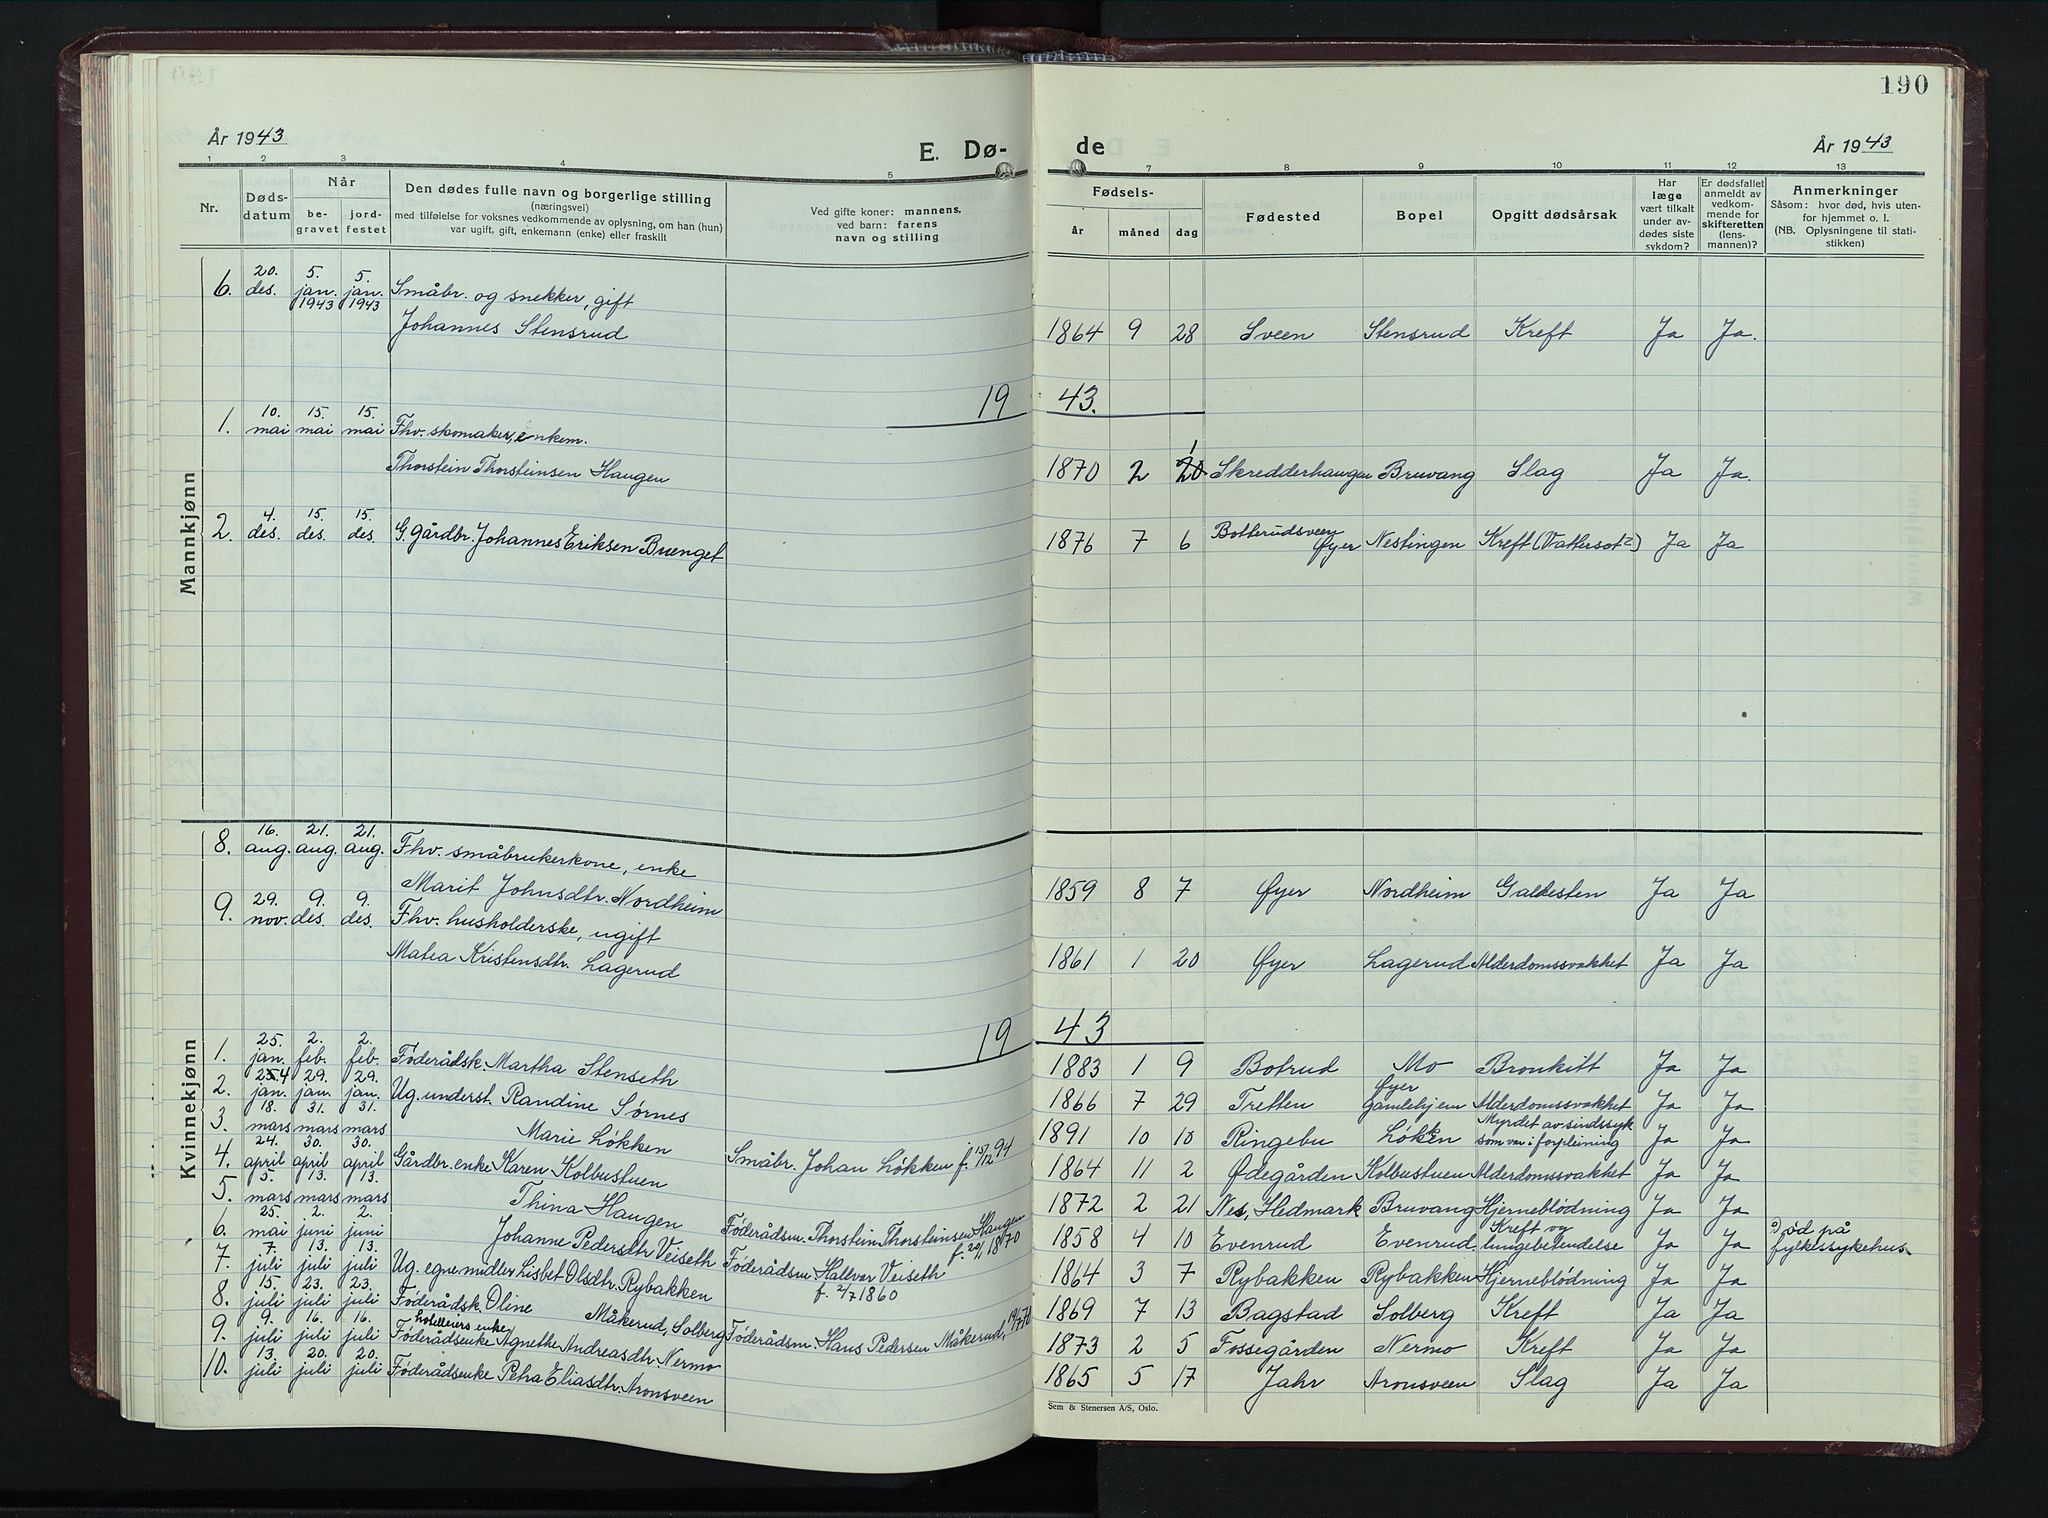 190
År 1943
E. Dø-
de
År 1943
1 2 3 4 5 7 8 9 10 11 12 13
Nr.
Døds-
datum
Når
be-
gravet
jord-
festet
Den dødes fulle navn og borgerlige stilling
(næringsvei)
med tilføielse for voksnes vedkommende av oplysning, om han (hun)
var ugift, gift, enkemann (enke) eller fraskilt
Ved gifte koner: mannens,
ved barn: farens
navn og stilling
Fødsels-
år måned dag
Fødested
Bopel
Opgitt dødsårsak
Har
læge
vært tilkalt
under av-
dødes siste
sykdom?
Er dødsfallet
anmeldt av
vedkom-
mende for
skifteretten
(lens-
mannen)?
Anmerkninger
Såsom: hvor død, hvis uten-
for hjemmet o. l.
(NB. Oplysningene til stati-
stikken)
Mannkjønn
6. 20. des. 5. jan. 1943 5. jan. 1943 Småbr. og snekker, gift
Johannes Stensrud 1864 9 28 Sveen Stensrud Kreft Ja Ja.
19 43.
1. 10. mai 15. mai 15. mai Fhv. skomaker, enkem.
Thorstein Thorsteinsen Haugen 1870 2 20 1 Skredderhaugen Bruvang Slag Ja Ja.
2. 4. des. 15. des. 15. des. G. gårdbr. Johannes Eriksen Buenget 1876 7 6 Botterudsveen Øyer Nestingen Kreft (Vattersot?) Ja Ja
Kvinnekjønn
8. 16. aug. 21. aug. 21. aug. Fhv. småbrukerkone, enke
Marit Johnsdtr. Nordheim 1859 8 7 Øyer Nordheim Galdesten Ja Ja
9. 29. nov. 9. des. 9. des. Fhv. husholderske, ugift
Matea Kristensdtr. Lagerud 1861 1 20 Øyer Lagerud Alderdomssvakhet Ja Ja
19 43
1. 25. jan. 2. feb. 2. feb. Føderådsk. Martha Stenseth 1883 1 9 Botrud Mo Bronkitt Ja Ja
2. 24 jan. 29. jan. 29. jan. Ug. underst. Randine Sørnes 1866 7 29 Tretten Øyer Gamlehjem Alderdomssvakhet Ja Ja
3. 18. mars 31. mars 31. mars Marie Løkken Småbr. Johan Løkken f. 15/12 94 1891 10 10 Ringebu Løkken Myrdet av sindssyk som var i forpleining Ja Ja
4. 24. april 30. april 30. april Gårdbr. enke Karen Kolbustuen 1864 11 2 Ødegården Kolbustuen Alderdomssvakhet Ja Ja
5. 5. mars 13. mars 13. mars Thina Haugen Føderådsm. Thorstein Thorsteinsen Haugen f. 20/1 1870 1872 2 21 Nes, Hedmark Bruvang Hjerneblödning Ja Ja
6. 25. mai 2. juni 2. juni Johanne Pedersdtr Veiseth Føderådsm Hallvar Veiseth f. 2/7 1860 1858 4 10 Evenrud Evenrud Kreft og lungebetendelse Ja Ja død på fylkessykehus.
7. 7. juli 13. juli 13. juli Ug. egne midler Lisbet Olsdtr. Rybakken 1864 3 7 Rybakken Rybakken Hjerneblödning Ja Ja
8. 15. juli 23. juli 23. juli Føderådsk. Oline Måkerud, Solberg Føderådsm. Hans Pedersen Måkerud, 19/7 70 1869 7 13 Bagstad Solberg Kreft Ja Ja
9. 9. juli 16. juli 16. juli Hotelleiers enke Føderådsenke Agnethe Andreasdtr. Nermo 1873 2 5 Fossegården Nermo Kreft Ja Ja
10. 13. juli 20. juli 20. juli Føderådsenke Petra Eliasdtr. Aronsveen 1865 5 17 Jahr Aronsveen Slag Ja Ja
Sem & Stenersen A/S, Oslo.